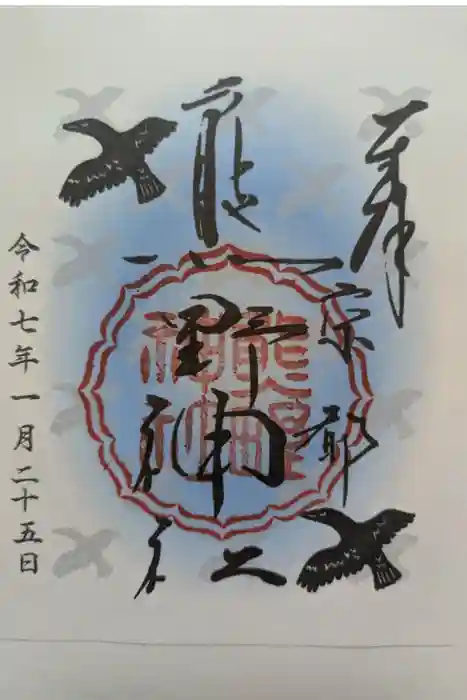 奉拝
京都
熊野神社
熊野
神社
令和七年一月二十五日